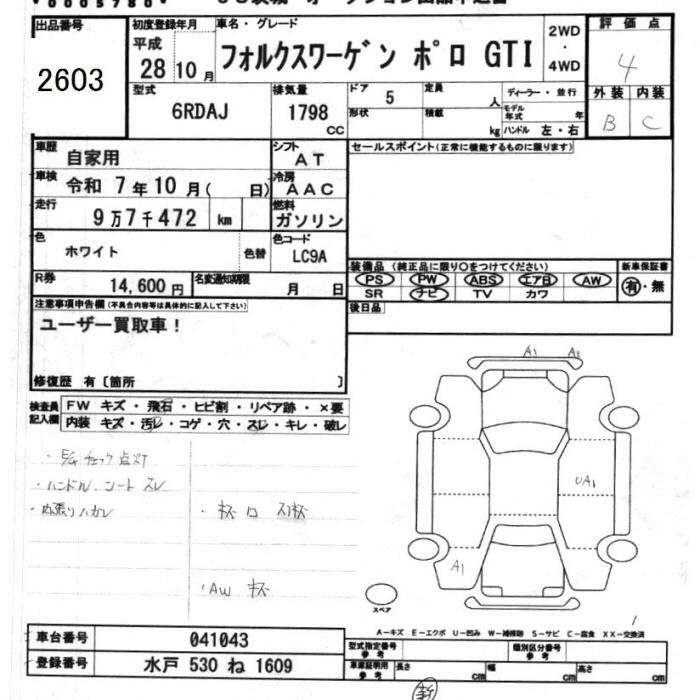 V0005780V
出品番号
2603
初度登録年月
平成
28 10月
車名・グレード
フォルクスワーゲン ポロ GTI
2WD
・
4WD
評価点
4
外装 内装
B C
型式
6RDAJ
排気量
1798
CC
ドア
5
形状
定員
人
積載
kg
ディーラー・並行
モデル年式 年
ハンドル 左・右
車歴
自家用
シフト
AT
車検
令和 7年10月( 日)
冷房
AAC
走行
9万7千472 km
燃料
ガソリン
色
ホワイト
色替
色コード
LC9A
R券
14,600円
名変通知期限
月 日
セールスポイント(正常に機能するものに限ります)
装備品(純正品に限り○をつけてください)
新車保証書
PS PW ABS エアB AW
SR ナビ TV カワ
有・無
後日品
注意事項申告欄(不具合内容等は具体的に記入して下さい)
ユーザー買取車!
修復歴 有〔箇所 〕
検査員記入欄
FW キズ・飛石・ヒビ割・リペア跡・×要
内装 キズ・汚レ・コゲ・穴・スレ・キレ・破レ
チェック点灯
・ハンドル シート スレ
・内張りハガレ
・AW
A1
UA1
A1
スペア
A-キズ E-エクボ U-凹み W-補修跡 S-サビ C-腐食 XX-交換済
車台番号
041043
登録番号
水戸 530 ね 1609
型式指定番号
参考
類別区分番号
参考
車庫証明用
参考
長さ cm
幅 cm
高さ cm
新